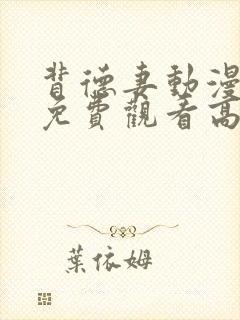 背德妻動漫
免費觀看高
葉依姆